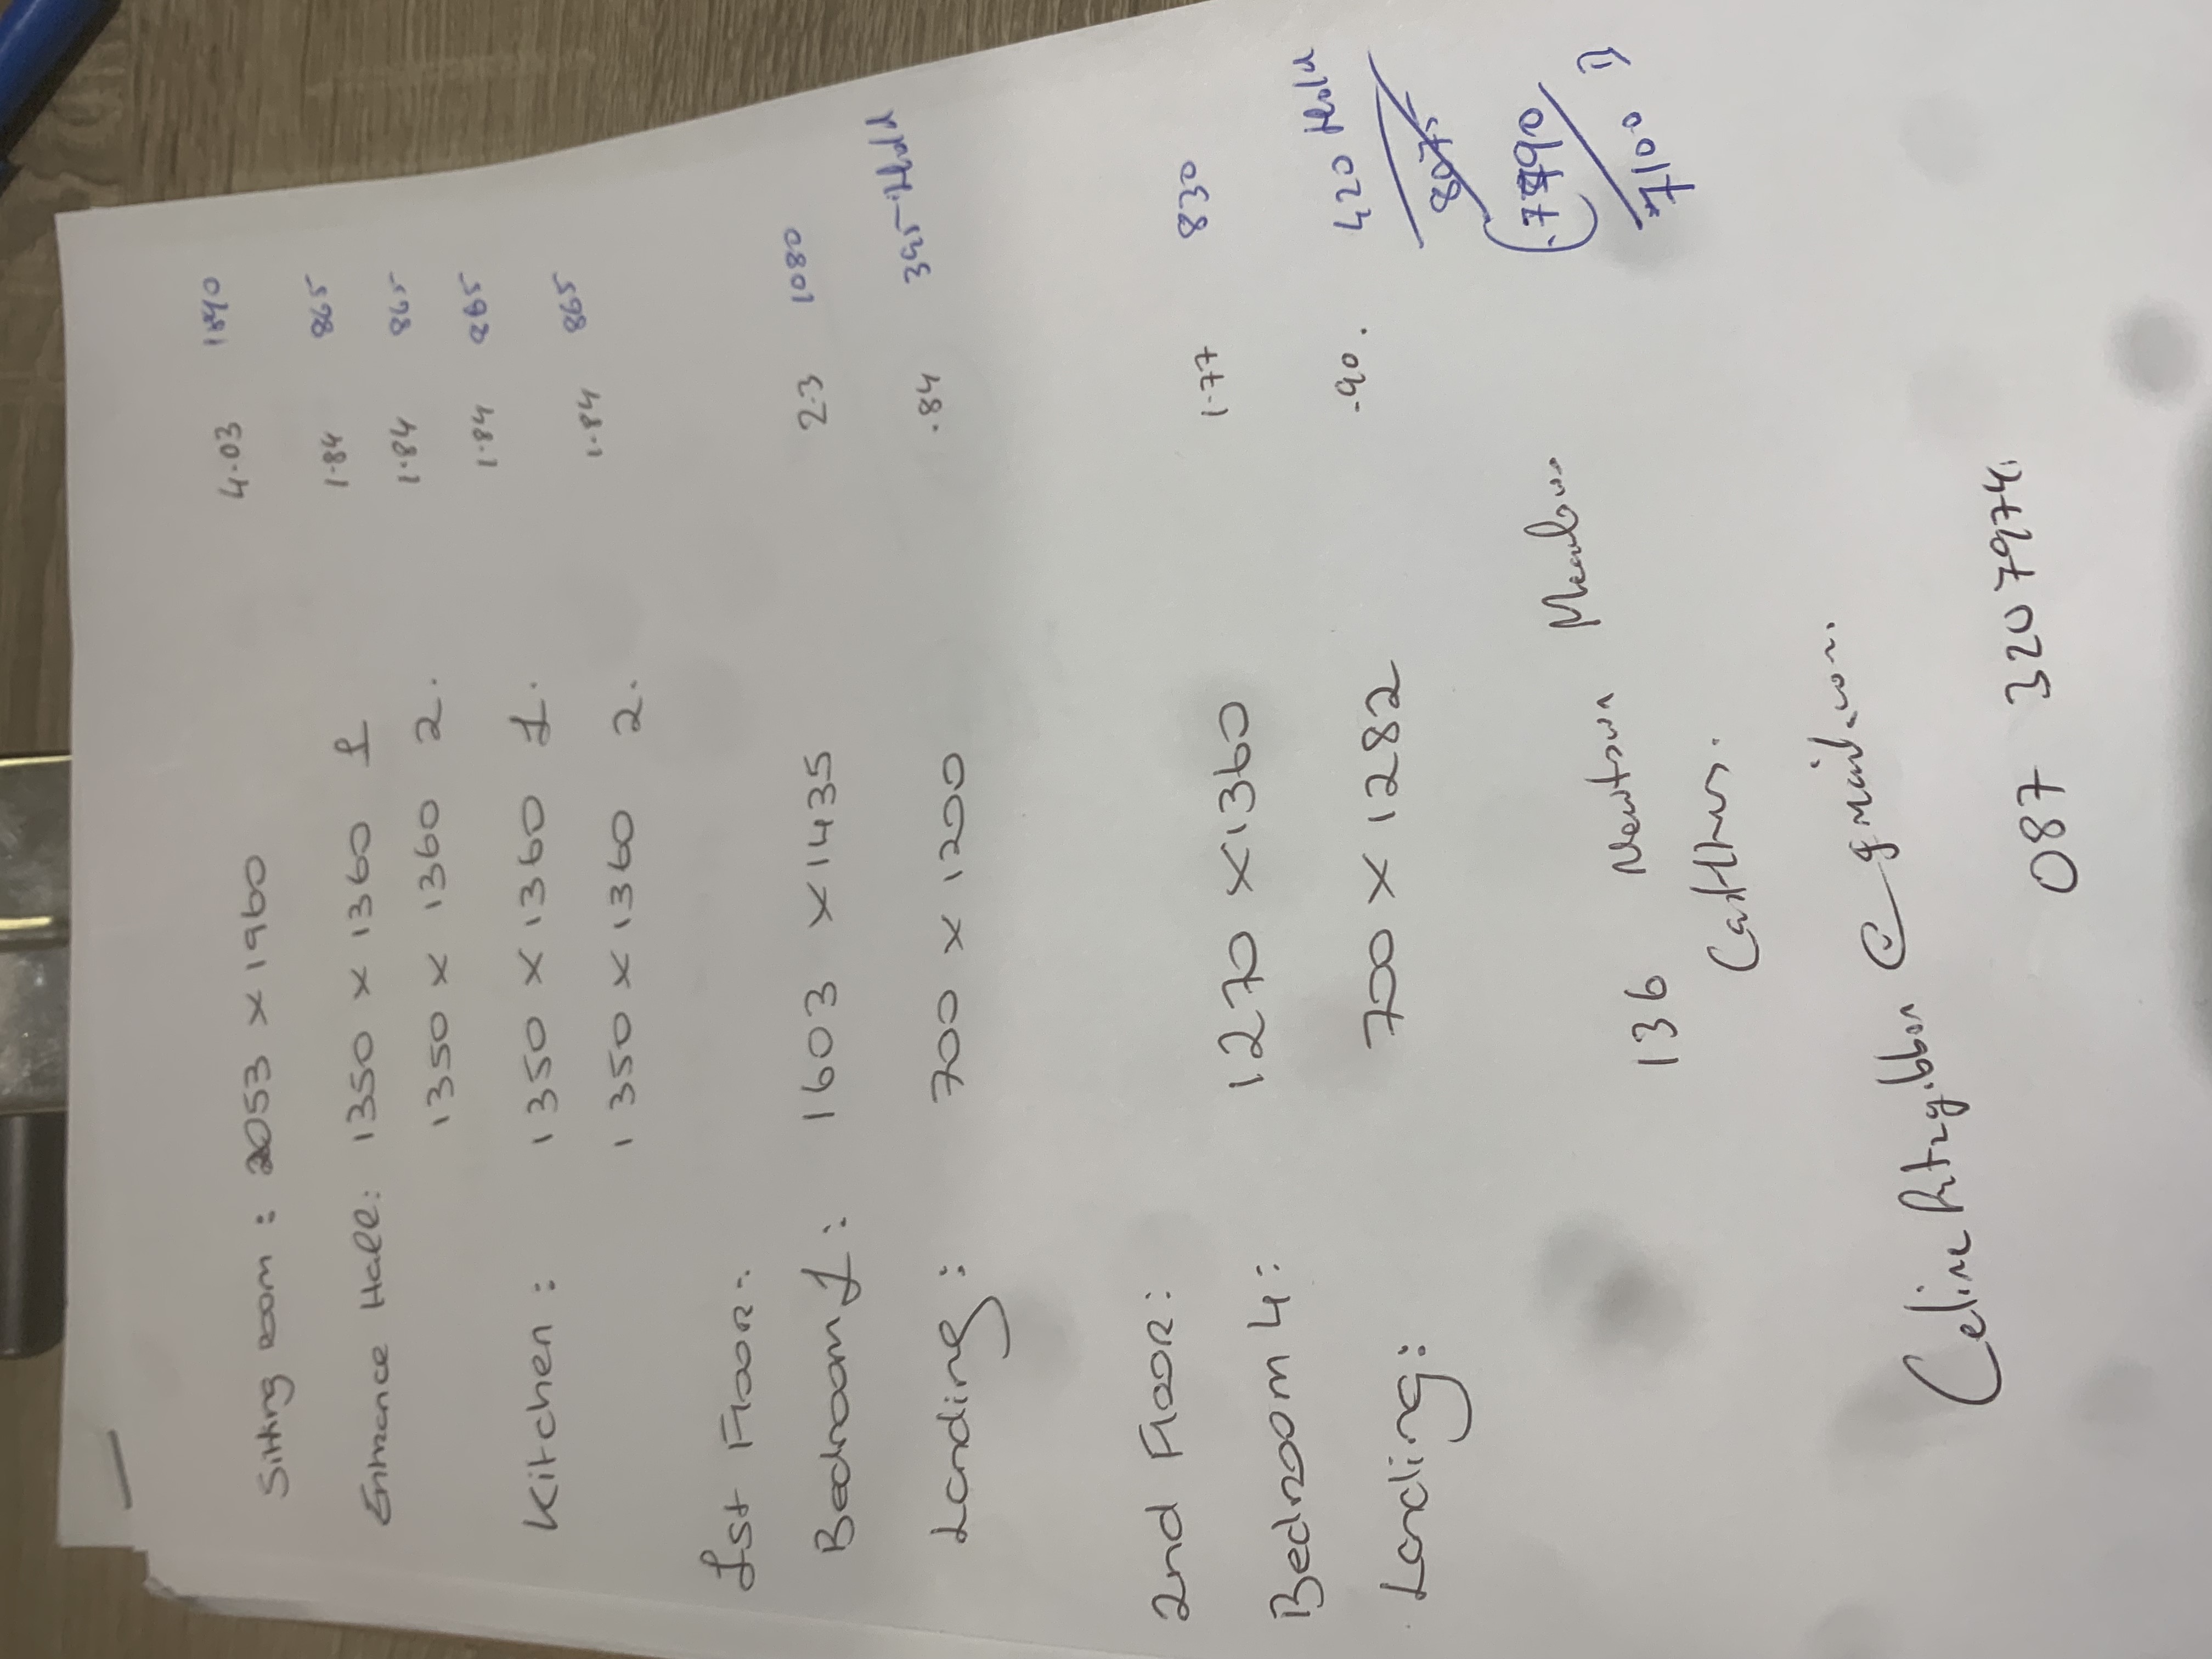 Sitting room : 2053 x 1960 4.03 1890
Entrance Hall: 1350 x 1360 1 1.84 865
1350 x 1360 2. 1.84 865
Kitchen : 1350 x 1360 1. 1.84 865
1350 x 1360 2. 1.84 865
1st Floor:
Bedroom 1: 1603 x 1435 2.3 1080
Landing: 700 x 1200 .84 395
2nd Floor:
Bedroom 4: 1270 x 1360 1.77 830
Landing: 700 x 1282 .90. 420
8075
7100
136 Newtown Meadows
Castletroy.
Celine Fitzgibbon @ gmail.com.
087 3207974